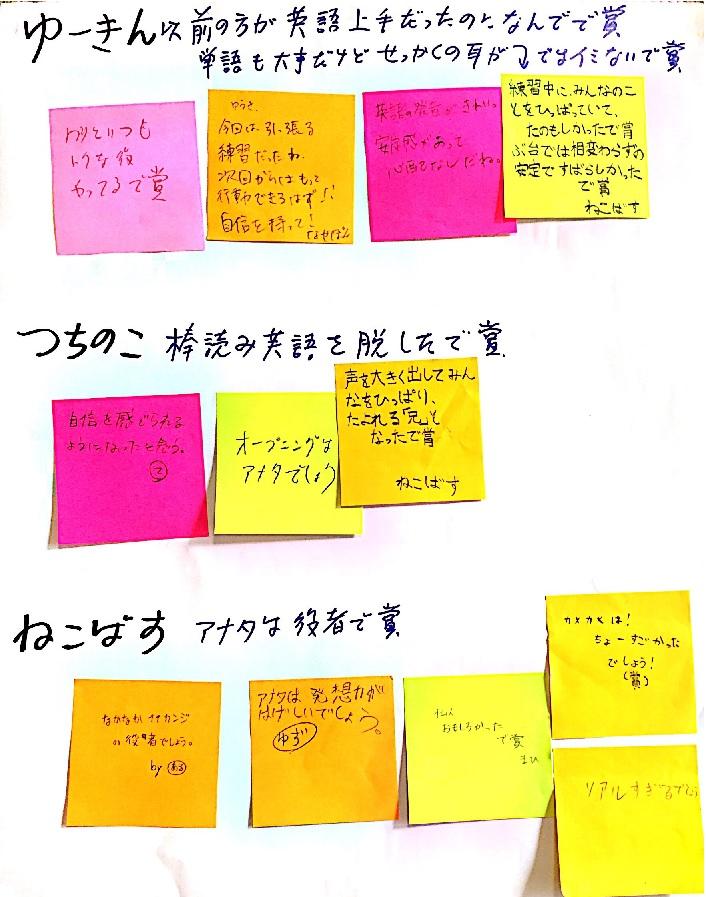 ゆーきん 以前の方が英語上手だったのになんでで賞
単語も大事だけどせっかくの耳が↓ではイミないで賞
いつも
トクな役
やってるで賞
ゆうき、
今回は引っ張る
練習だったね。
次回からはもって
行動できるはず!!
自信を持って!
英語の発音がきれい
安定感があって
心配なしだね。
練習中に、みんなのこ
とをひっぱっていて、
たのもしかったで賞
ぶ台では相変わらずの
安定ですばらしかった
で賞
ねこばす
つちのこ 棒読み英語を脱したで賞
自信を感じられる
ようになったと思う。
オープニングは
アナタでしょう
声を大きく出してみん
なをひっぱり、
たよれる「兄」と
なったで賞
ねこばす
ねこばす アナタは役者で賞
なかなかイイカンジ
の役者でしょう。
by ある
アナタは発想力が
はげしいでしょう。
ゆず
おもしろかった
で賞
まひ
カメカメは!
ちょーすごかった
でしょう!
(賞)
リアルすぎるでしょ